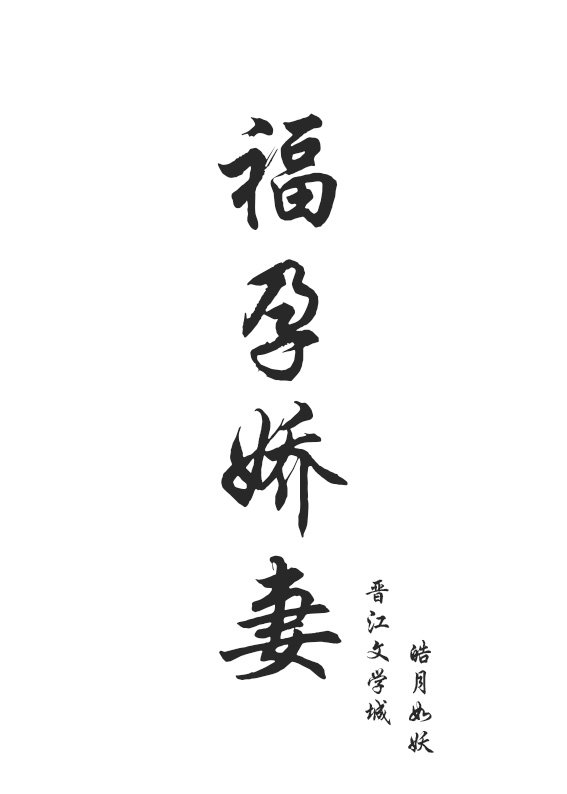 福孕娇妻
晋江文学城
皓月如妖